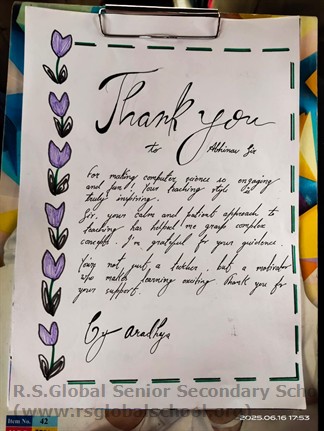 Thank you
to Abhinav Sir
For making computer science so engaging
and fun! Your teaching style is
truly inspiring.
Sir, your calm and patient approach to
teaching has helped me grasp complex
concepts. I'm grateful for your guidence.
You're not just a teacher, but a motivator
who makes learning exciting Thank you for
your support.
By Aradhya
R.S.Global Senior Secondary Scho
(www.rsglobalschool.org)
Item No. 42
2025.06.16 17:53